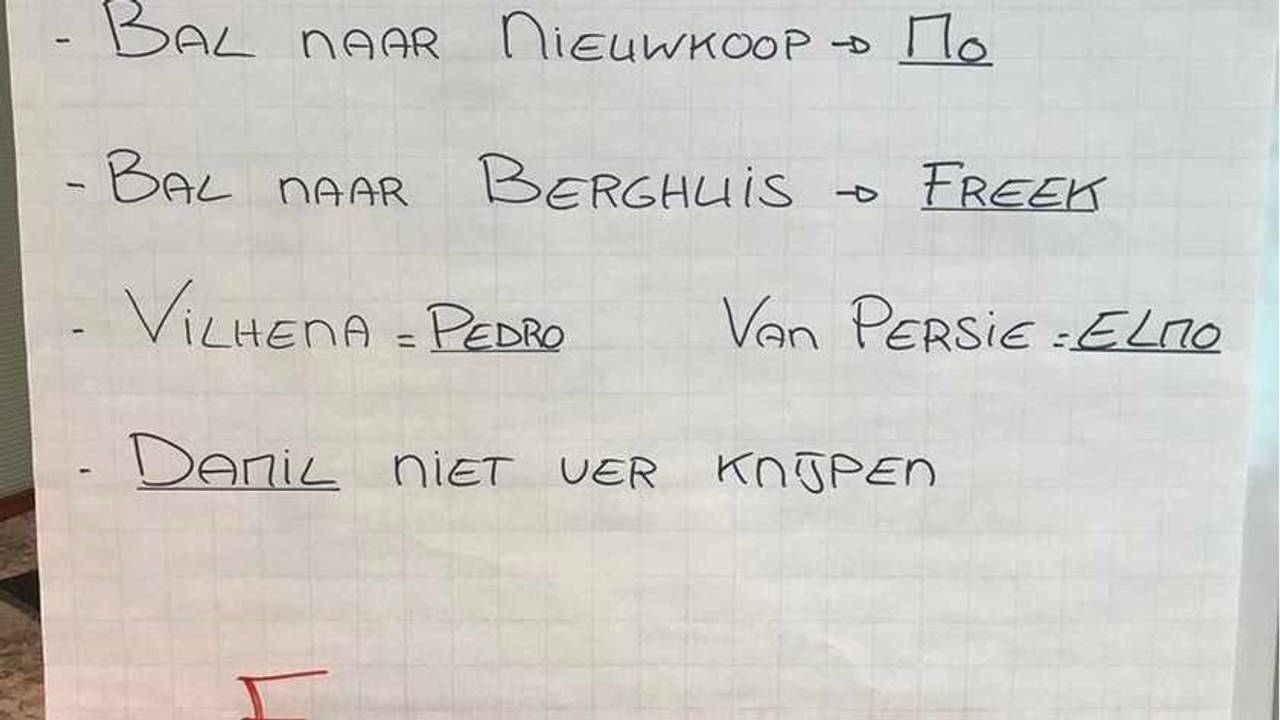 - BAL NAAR NIEUWKOOP → MO
- BAL NAAR BERGHUIS → FREEK
- VILHENA = PEDRO VAN PERSIE = ELMO
- DAMIL NIET VER KNIJPEN